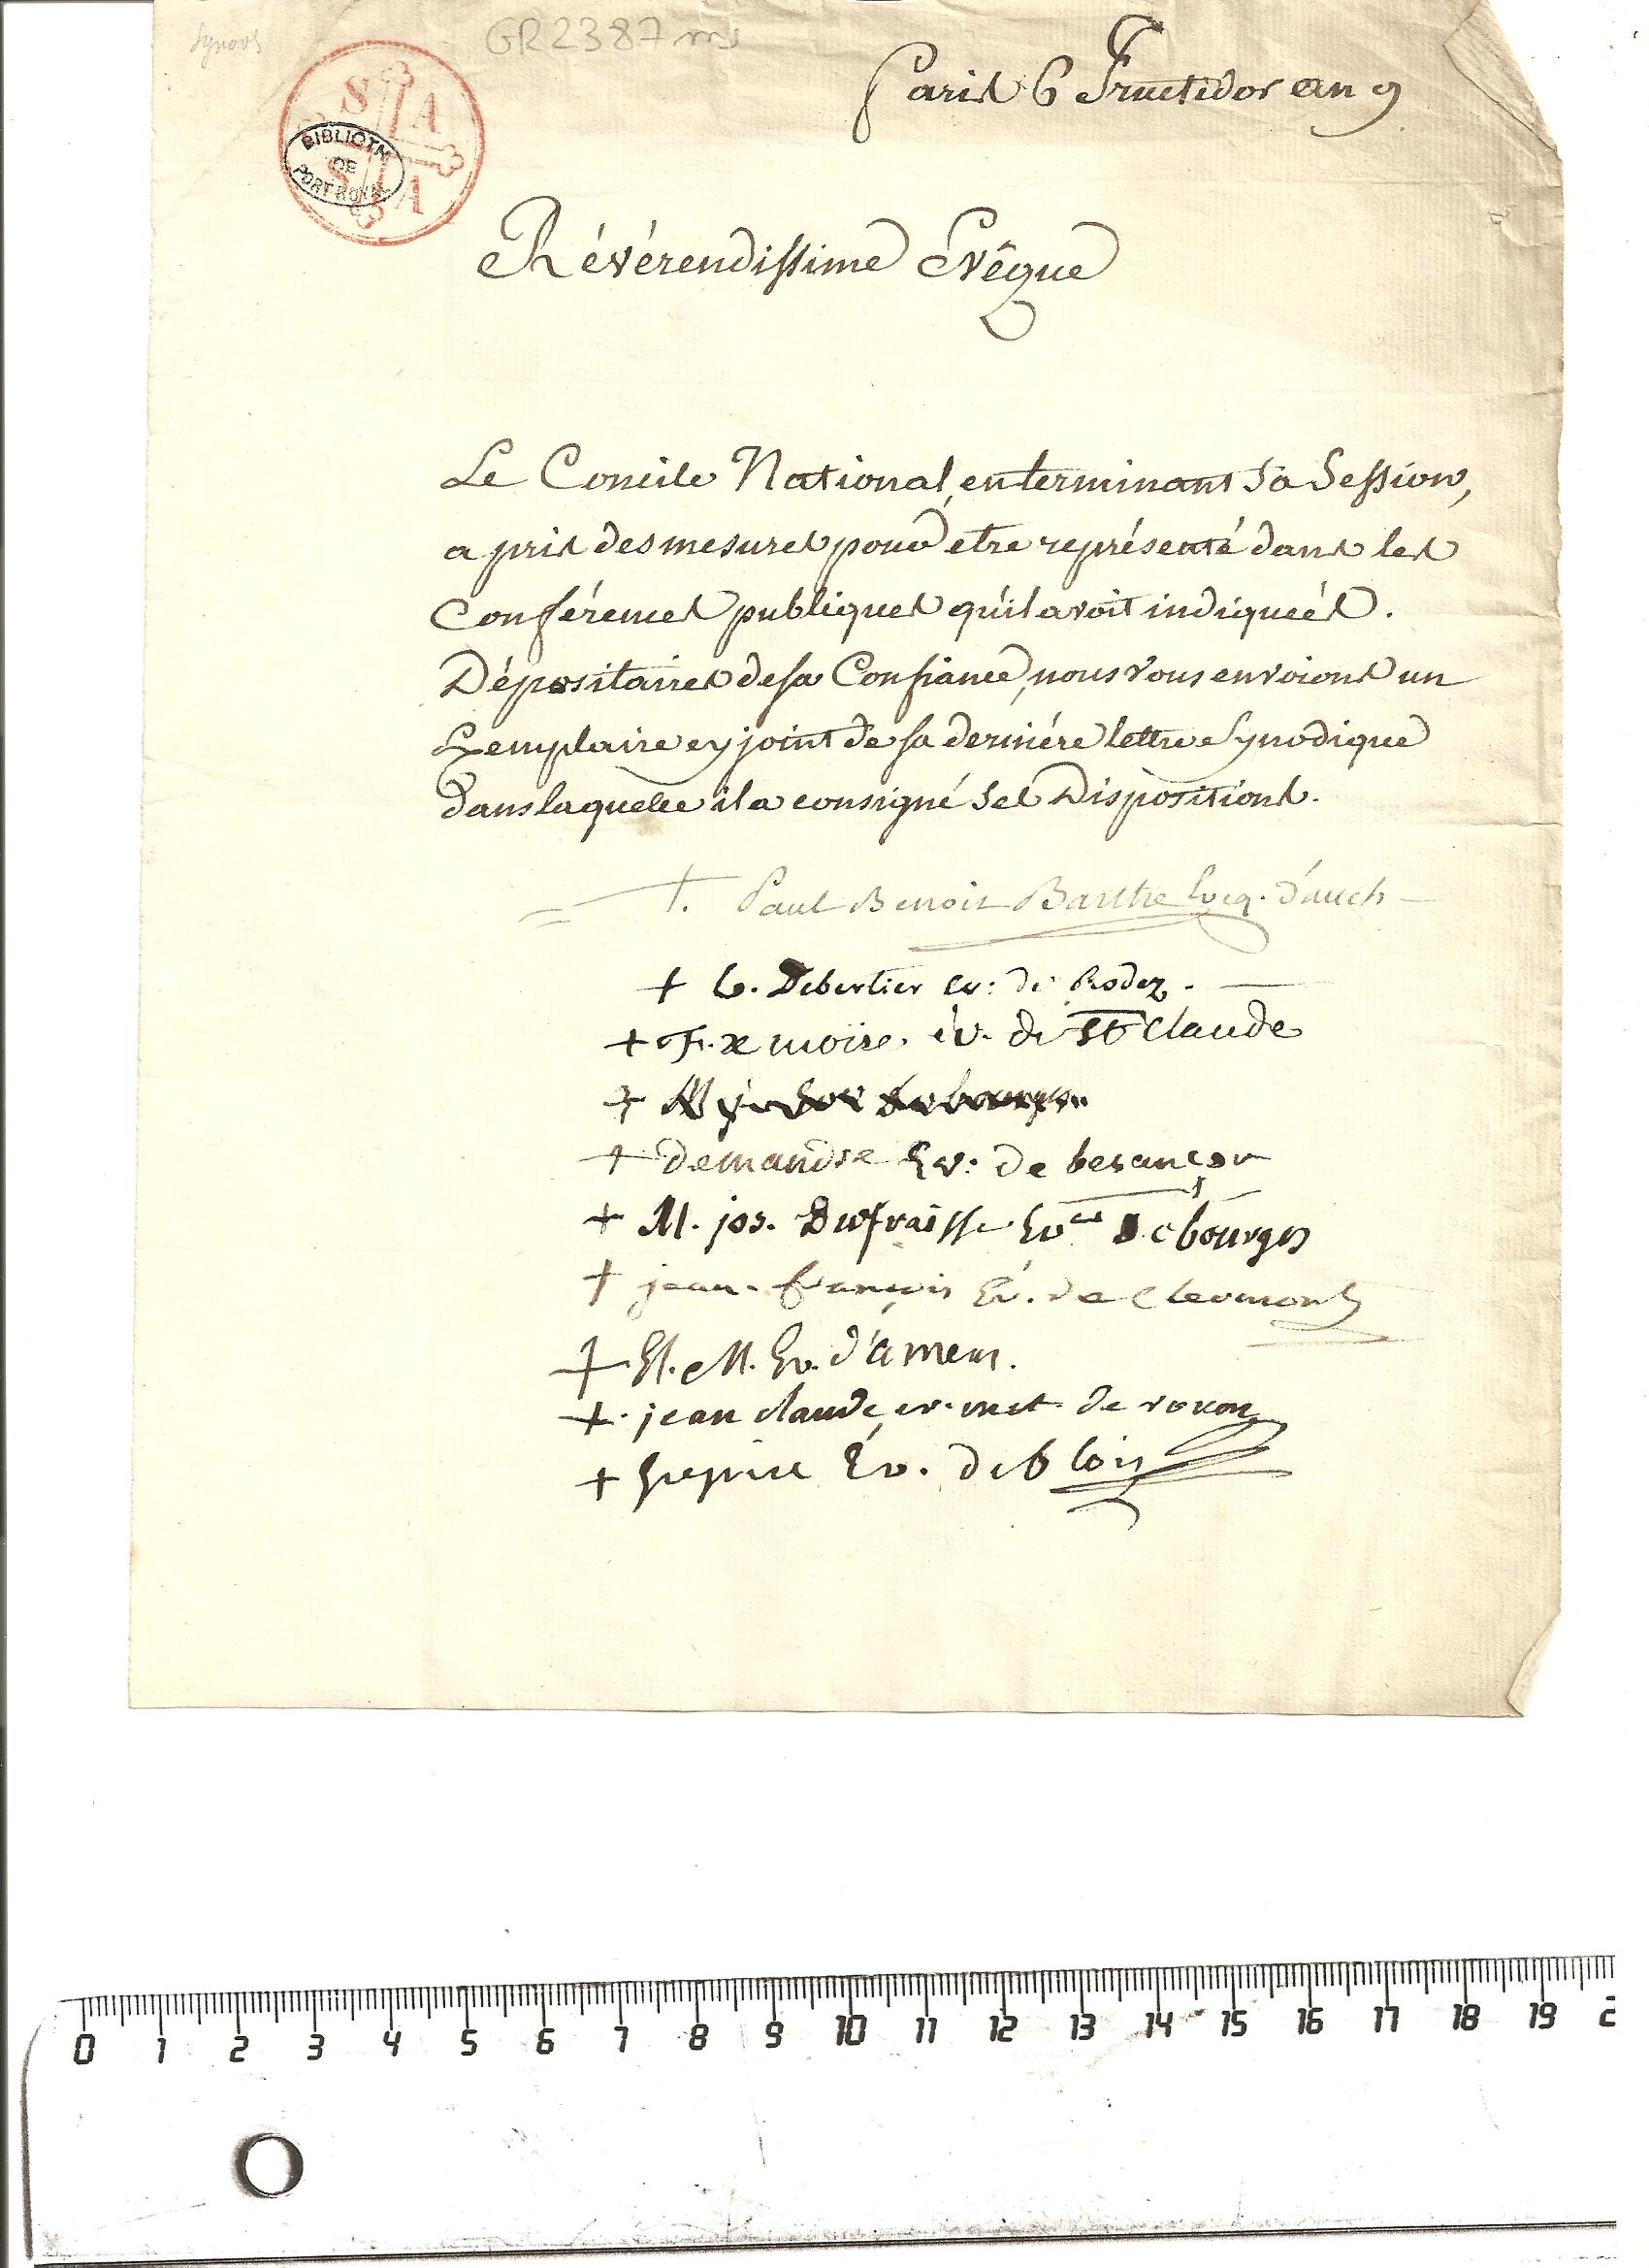 Synode
GR2387 ms
Paris 6 Fructidor an 9
S A
S A
BIBLIOTH
DE
PORT ROYAL
Révérendissime Evêque
Le Concile National, en terminant sa Session,
a pris des mesures pour etre représenté dans les
Conférences publiques qu'il avoit indiquées.
Dépositaires de sa Confiance, nous vous envoions un
Exemplaire cy joint de sa derniére lettre Synodique
dans laquelle il a consigné ses Dispositions.
+. Paul Benoit Barthe Evêq. d'auch
+ C. Debertier ev: de Rodez.
+ F. x moïse. év. de St Claude
+
+ demandre Ev: de besançon
+ M. jos. Dufraisse Ev. de bourges
+ jean-françois Ev. de Clermont
+ El. M. Ev. d'amiens.
+. jean claude, ev. met. de rouen
+ Grégoire Ev. de blois
0 1 2 3 4 5 6 7 8 9 10 11 12 13 14 15 16 17 18 19 2